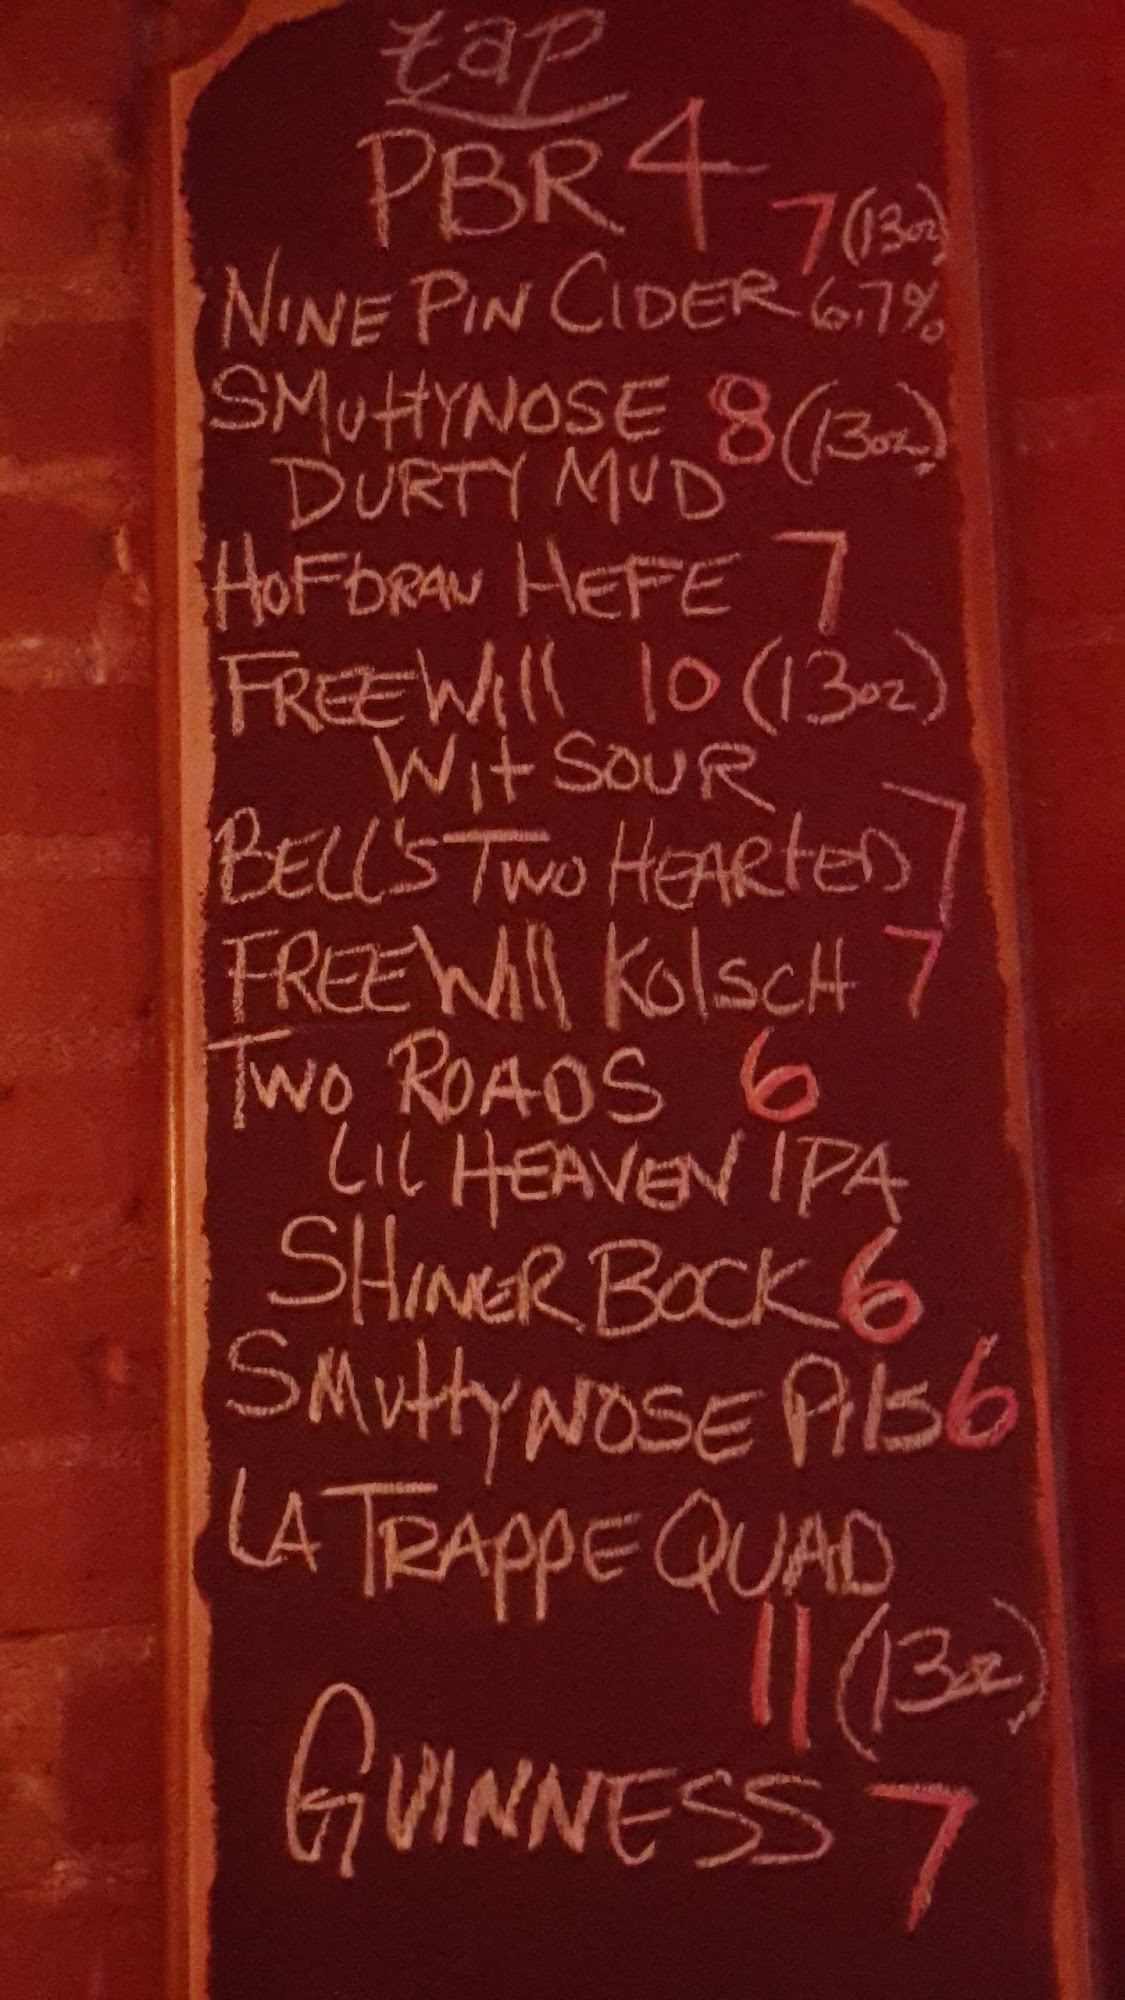 tap
PBR 4
7 (13oz)
NINE PIN CIDER 6.7%
SMUTTYNOSE 8 (13oz)
DURTY MUD
HOFBRAU HEFE 7
FREEWill 10 (13oz)
Wit SOUR
BELL'S TWO HEARTED 7
FREEWill KOlSCH 7
TWO ROADS 6
LIL HEAVEN IPA
SHINER BOCK 6
SMUTTYNOSE PilS 6
LA TRAPPE QUAD
11 (13oz)
GUINNESS 7